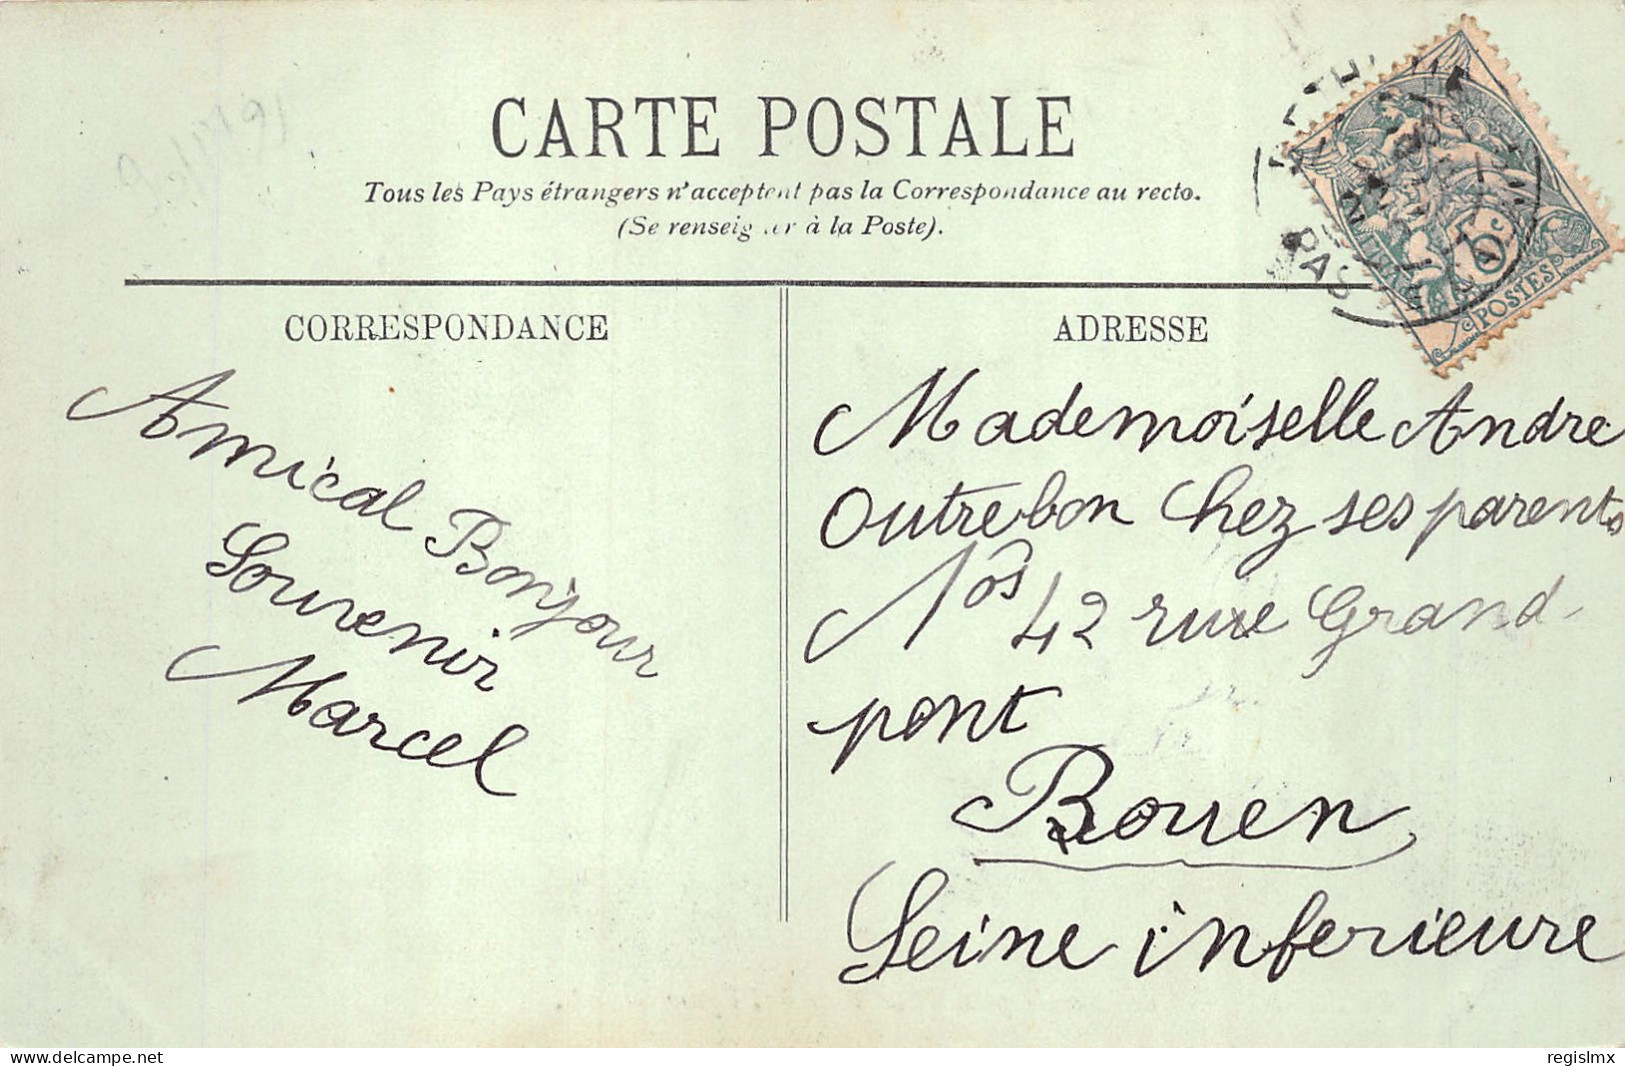 CARTE POSTALE
Tous les Pays étrangers n'acceptent pas la Correspondance au recto.
(Se renseigner à la Poste).
CORRESPONDANCE
Amical Bonjour
Souvenir
Marcel
ADRESSE
Mademoiselle Andre
Outrebon Chez ses parents
Nos 42 rue Grand-
pont
Rouen
Seine inferieure
5c
POSTES
PAS
delcampe.net
regislmx